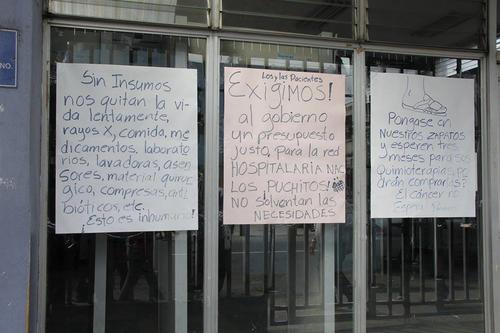 NO.
Sin Insumos
nos quitan la vi-
da lentamente,
rayos X, comida, me
dicamentos, laborato
rios, lavadoras, asen
sores, material quirúr
gico, compresas, anti
bióticos, etc.
¡Esto es inhumano!
Los y las Pacientes
EXIGIMOS!
al gobierno
un presupuesto
justo, para la red
HOSPITALARIA NAC
LOS PUCHITOS!
NO solventan las
NECESIDADES
Pongase en
NUESTROS ZAPATOS
y esperen tres
meses para sus
Quimioterapias, po
drán comprarlas?
El cáncer no
Espera